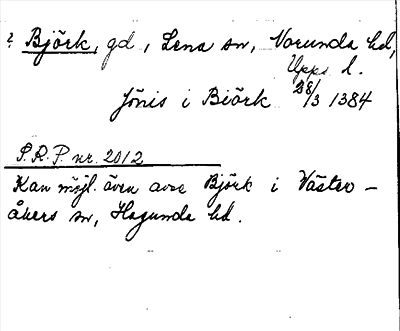 ? Björk, gd, Lena sn, Norunda hd,
Upps l.
Jönis i Biörk 28/3 1384
S.R.P. nr. 2012
Kan möjl. även avse Björk i Väster-
åkers sn, Hagunda hd.